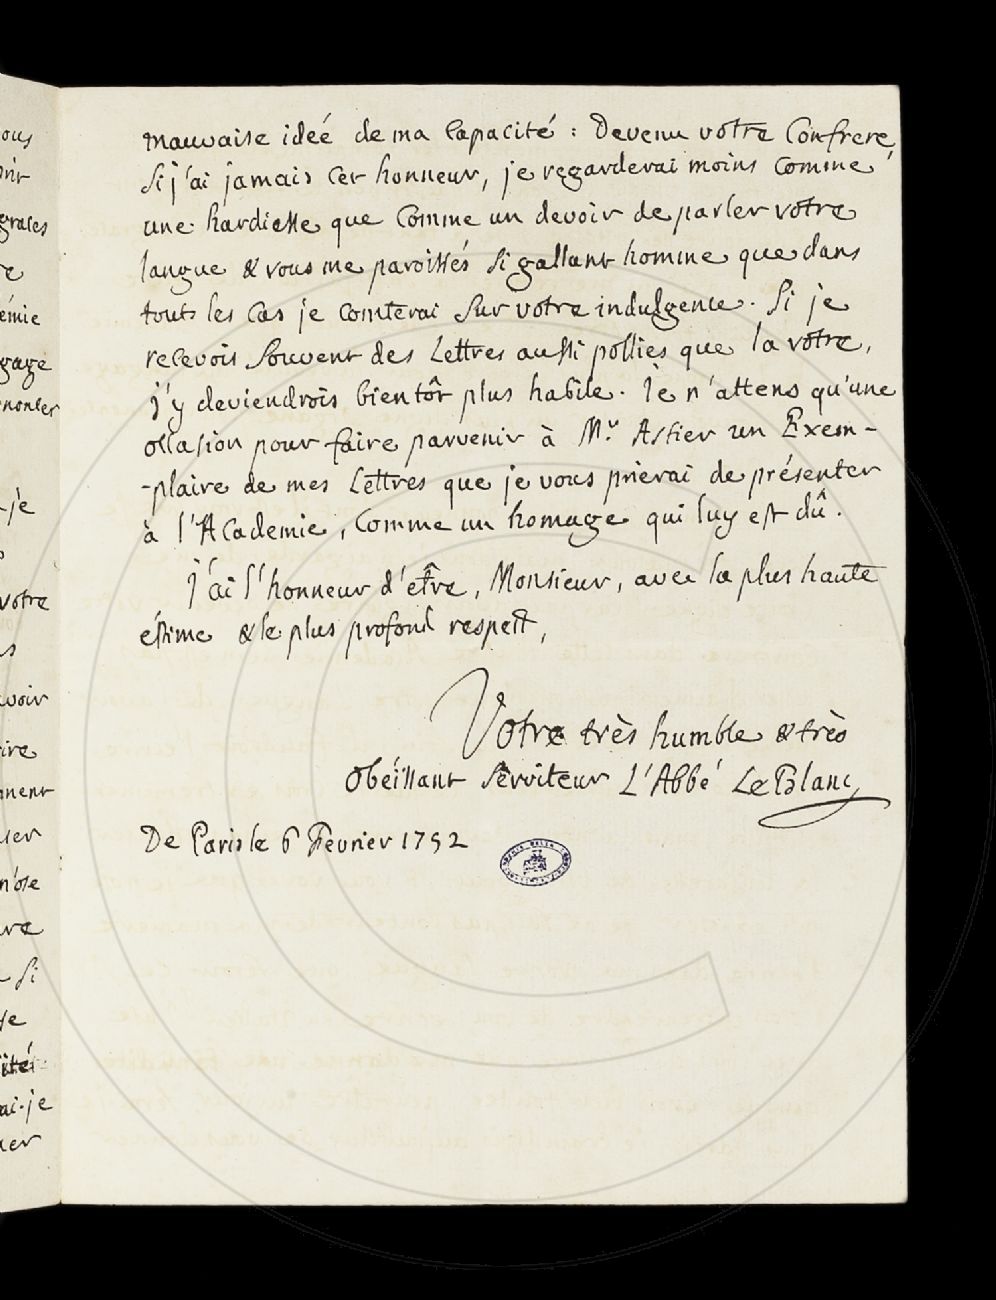 ous
grales
re
émie
gage
noncer
-je
votre
s
avoir
ire
nent
uer
n'ose
- Si
ité
ai-je
uer
mauvaise ideé de ma Capacité : Devenu votre Confrere,
Si j'ai jamais cet honneur, je regarderai moins comme
une hardiesse que comme un devoir de parler votre
langue & vous me paroissés si gallant homme que dans
touts les Cas je comterai sur votre indulgence. Si je
recevois Souvent des Lettres aussi polies que la votre,
j'y deviendrois bientôt plus habile. Je n'attens qu'une
occasion pour faire parvenir à Mr Astier un Exem-
-plaire de mes Lettres que je vous prierai de présenter
à l'Academie, Comme un homage qui luy est dû.
J'ai l'honneur d'etre, Monsieur, avec la plus haute
éstime & le plus profond respect,
Votre très humble & très
Obéissant Serviteur L'Abbé Le Blanc
De Paris le 6 Fevrier 1752